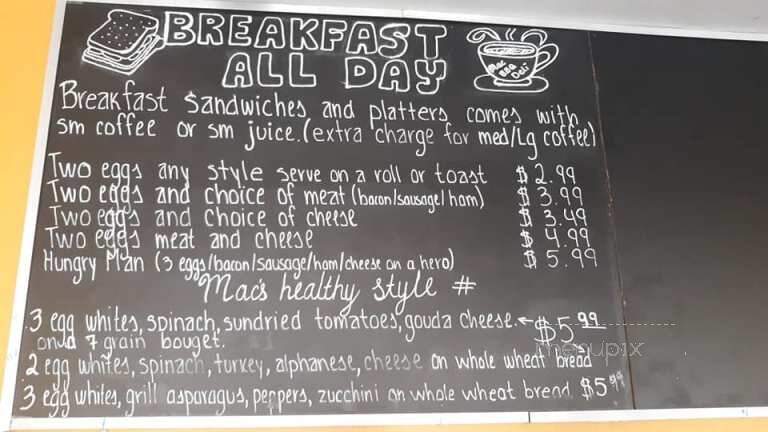 BREAKFAST
ALL DAY
Mac
Deli
Breakfast sandwiches and platters comes with
sm coffee or sm juice.(extra charge for med/Lg coffee)
Two eggs any style serve on a roll or toast $2.99
Two eggs and choice of meat (bacon/sausage/ham) $3.99
Two eggs and choice of cheese $3.49
Two eggs meat and cheese $4.99
Hungry Man (3 eggs/bacon/sausage/ham/cheese on a hero) $5.99
Mac's healthy style #
3 egg whites, spinach, sundried tomatoes, gouda cheese. ← $5.99
on a 7 grain bouget.
menupix
2 egg whites, spinach, turkey, alphanese, cheese on whole wheat bread
3 egg whites, grill asparagus, peppers, zucchini on whole wheat bread $5.99